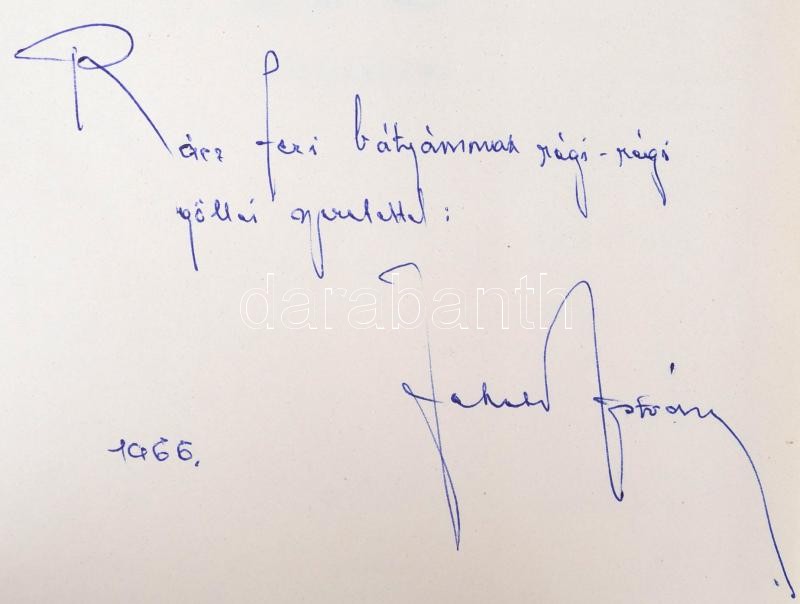 Rácz Feri bátyámnak régi-régi
szeretettel:
darabanth
István
1966.